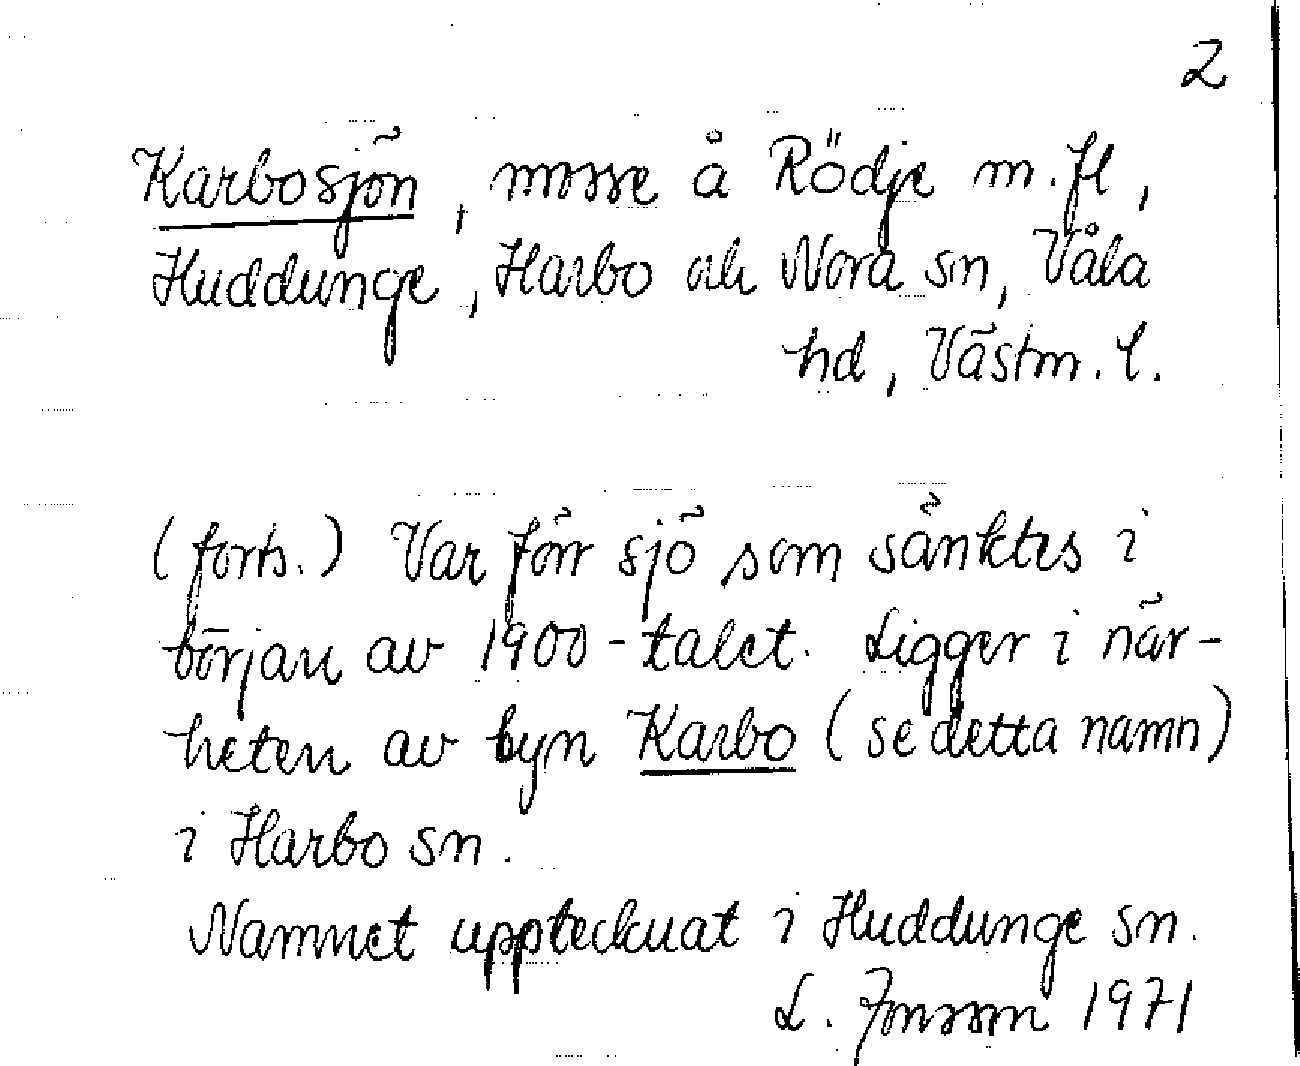 2
Karbosjön, mosse å Rödje m.fl,
Huddunge, Harbo och Nora sn, Våla
hd, Västm. l.
(forts.) Var förr sjö som sänktes i
början av 1900-talet. Ligger i när-
heten av byn Karbo (se detta namn)
i Harbo sn.
Namnet upptecknat i Huddunge sn.
L. Jonsson 1971